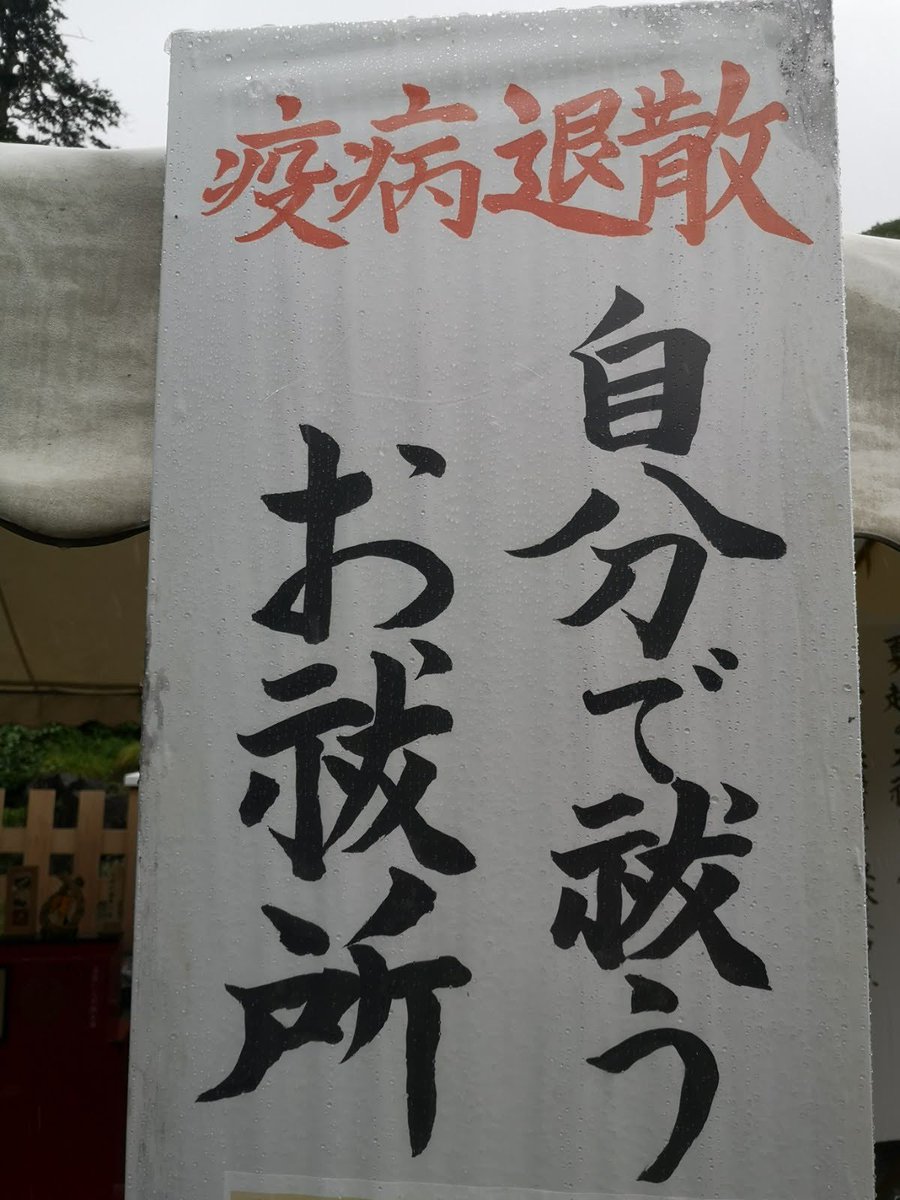 疫病退散
自分で祓う
お祓所